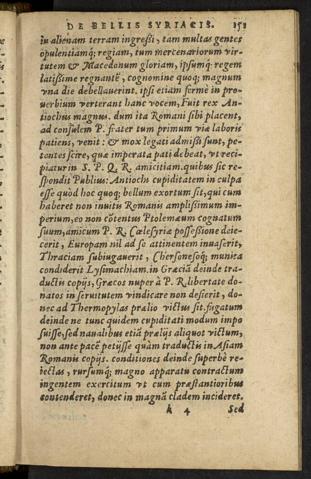 DE BELLIS SYRIACIS. 151
in alienam terram ingreßi, tam multas gentes
opulentiamq́; regiam, tum mercenariorum vir-
tutem & Macedonum gloriam, ipsumq́; regem
latißimè regnantē, cognomine quoq; magnum
vna die debellauerint. ipsi etiam fermè in pro-
uerbium verterant hanc vocem, Fuit rex An-
tiochus magnus. dum ita Romani sibi placent,
ad consulem P. frater tum primum via laboris
patiens, venit: & mox legati admißi sunt, pe-
tentes scire, quæ imperata pati debeat, vt reci-
piatur in S. P. Q. R. amicitiam. quibus sic re-
spondit Publius: Antiochi cupiditatem in culpa
esse quòd hoc quoq; bellum exortum sit, qui cum
haberet non inuitis Romanis amplißimum im-
perium, eo non cōtentus Ptolemæum cognatum
suum, amicum P. R. Cœlesyriæ possessione deie-
cerit, Europam nil ad se attinentem inuaserit,
Thraciam subiugauerit, Chersonesoq́; munita
condiderit Lysimachiam. in Græciā deinde tra-
ductis copijs, Græcos nuper à P. R. libertate do-
natos in seruitutem vindicare non desierit, do-
nec ad Thermopylas prælio victus sit. fugatum
deinde ne tunc quidem cupiditati modum impo
suisse, sed naualibus etiā prælijs aliquot victum,
non ante pacē petijsse quàm traductis in Asiam
Romanis copijs. conditiones deinde superbè re-
iectas, rursumq́; magno apparatu contractum
ingentem exercitum vt cum præstantioribus
contenderet, donec in magnā cladem inciderit.
k 4 Sed